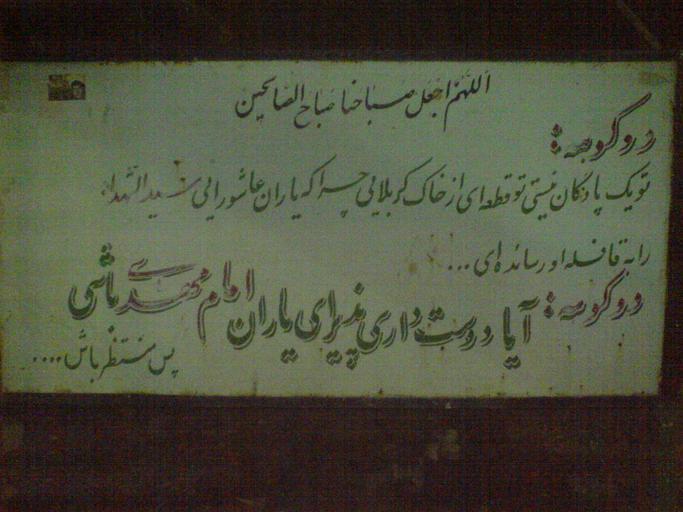 اَللّهُمَّ اجْعَل صَباحَنا صَباحَ الصّالِحین
دوکوهه:
تو یک پادگان نیستی تو قطعه‌ای از خاک کربلایی چرا که یاران عاشورایی سیدالشهداء
را به قافله او رسانده‌ای...
دوکوهه:
آیا دوست داری پذیرای یاران امام مهدی باشی
پس منتظر باش....